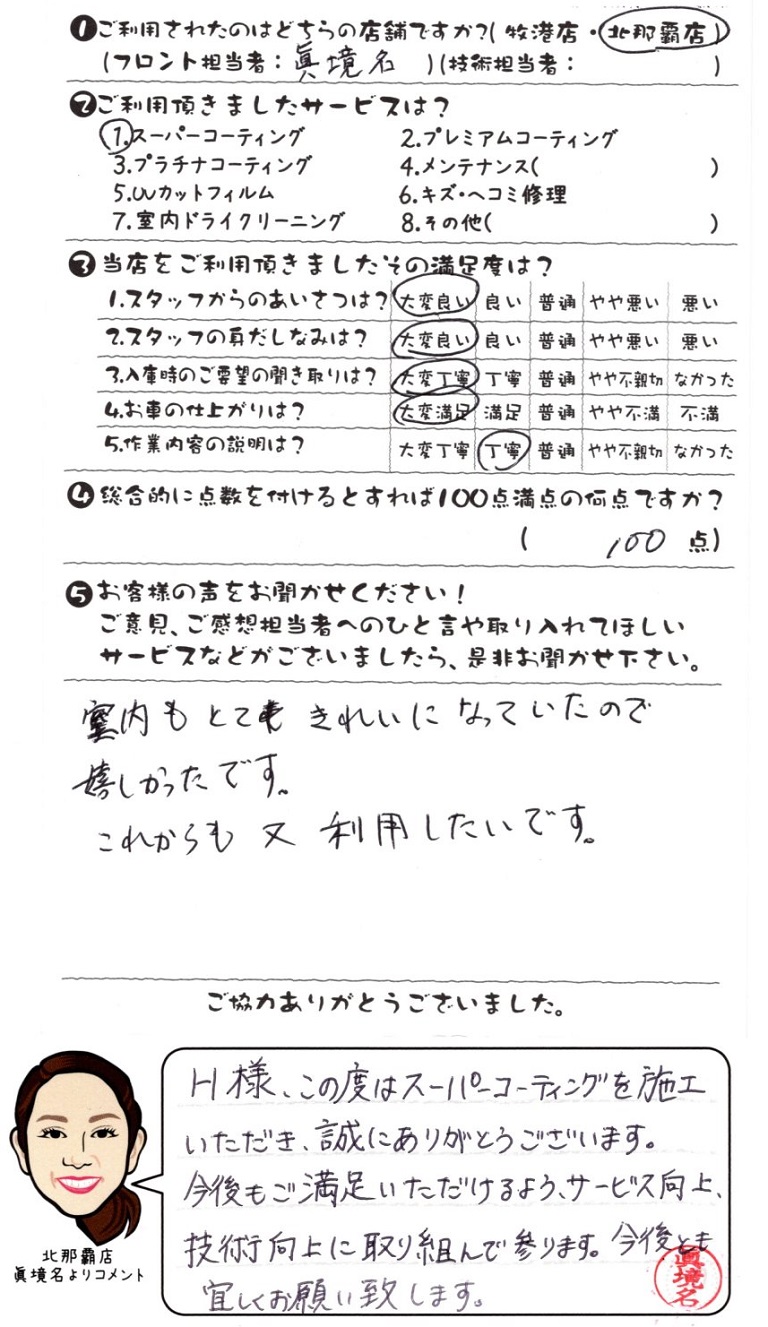 ❶ご利用されたのはどちらの店舗ですか?(牧港店・北那覇店)
(フロント担当者:眞境名)(技術担当者: )
❷ご利用頂きましたサービスは?
1.スーパーコーティング 2.プレミアムコーティング
3.プラチナコーティング 4.メンテナンス( )
5.UVカットフィルム 6.キズ・ヘコミ修理
7.室内ドライクリーニング 8.その他( )
❸当店をご利用頂きましたその満足度は?
1.スタッフからのあいさつは? 大変良い 良い 普通 やや悪い 悪い
2.スタッフの身だしなみは? 大変良い 良い 普通 やや悪い 悪い
3.入庫時のご要望の聞き取りは? 大変丁寧 丁寧 普通 やや不親切 なかった
4.お車の仕上がりは? 大変満足 満足 普通 やや不満 不満
5.作業内容の説明は? 大変丁寧 丁寧 普通 やや不親切 なかった
❹総合的に点数を付けるとすれば100点満点の何点ですか?
( 100 点)
❺お客様の声をお聞かせください!
ご意見、ご感想担当者へのひと言や取り入れてほしい
サービスなどがございましたら、是非お聞かせ下さい。
室内もとてもきれいになっていたので
嬉しかったです。
これからも又利用したいです。
ご協力ありがとうございました。
H様、この度はスーパーコーティングを施工
いただき、誠にありがとうございます。
今後もご満足いただけるよう、サービス向上、
技術向上に取り組んで参ります。今後とも
宜しくお願い致します。
眞境名
北那覇店
眞境名よりコメント